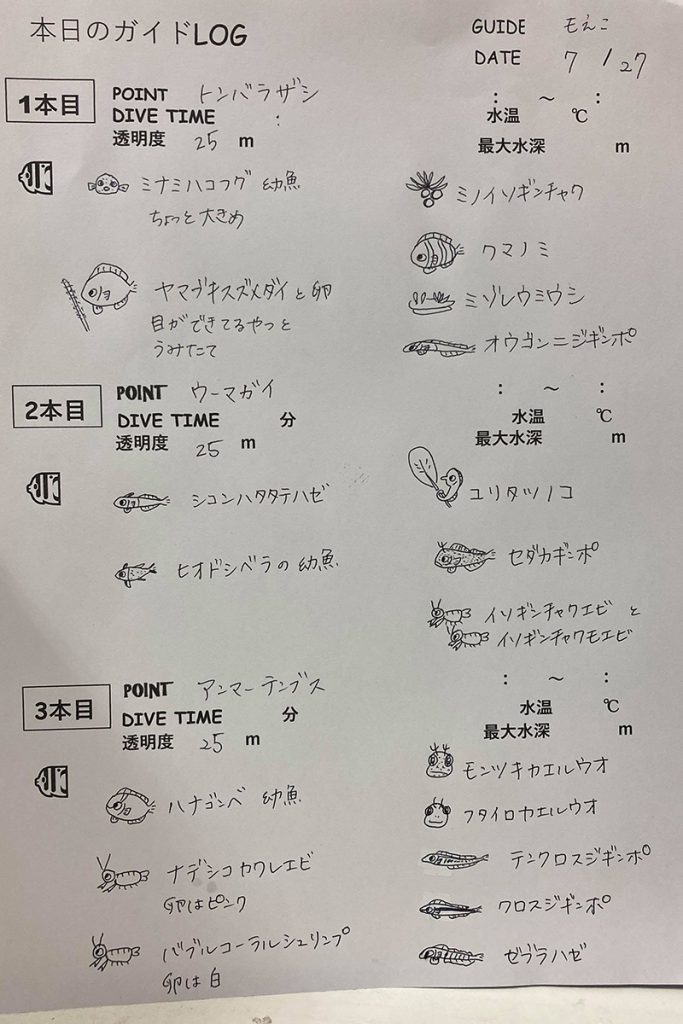 本日のガイドLOG
GUIDE もえこ
DATE 7 / 27
1本目
POINT トンバラザシ
DIVE TIME :
透明度 25 m
: ～ :
水温 ℃
最大水深 m
ミナミハコフグ 幼魚
ちょっと大きめ
ヤマブキスズメダイと卵
目ができてるやっと
うみたて
ミノイソギンチャク
クマノミ
ミゾレウミウシ
オウゴンニジギンポ
2本目
POINT ウーマガイ
DIVE TIME 分
透明度 25 m
: ～ :
水温 ℃
最大水深 m
シコンハタタテハゼ
ヒオドシベラの幼魚
ユリタツノコ
セダカギンポ
イソギンチャクエビ と
イソギンチャクモエビ
3本目
POINT アンマーテンブス
DIVE TIME 分
透明度 25 m
: ～ :
水温 ℃
最大水深 m
ハナゴンベ 幼魚
ナデシコカクレエビ
卵はピンク
バブルコーラルシュリンプ
卵は白
モンツキカエルウオ
フタイロカエルウオ
テンクロスジギンポ
クロスジギンポ
ゼブラハゼ